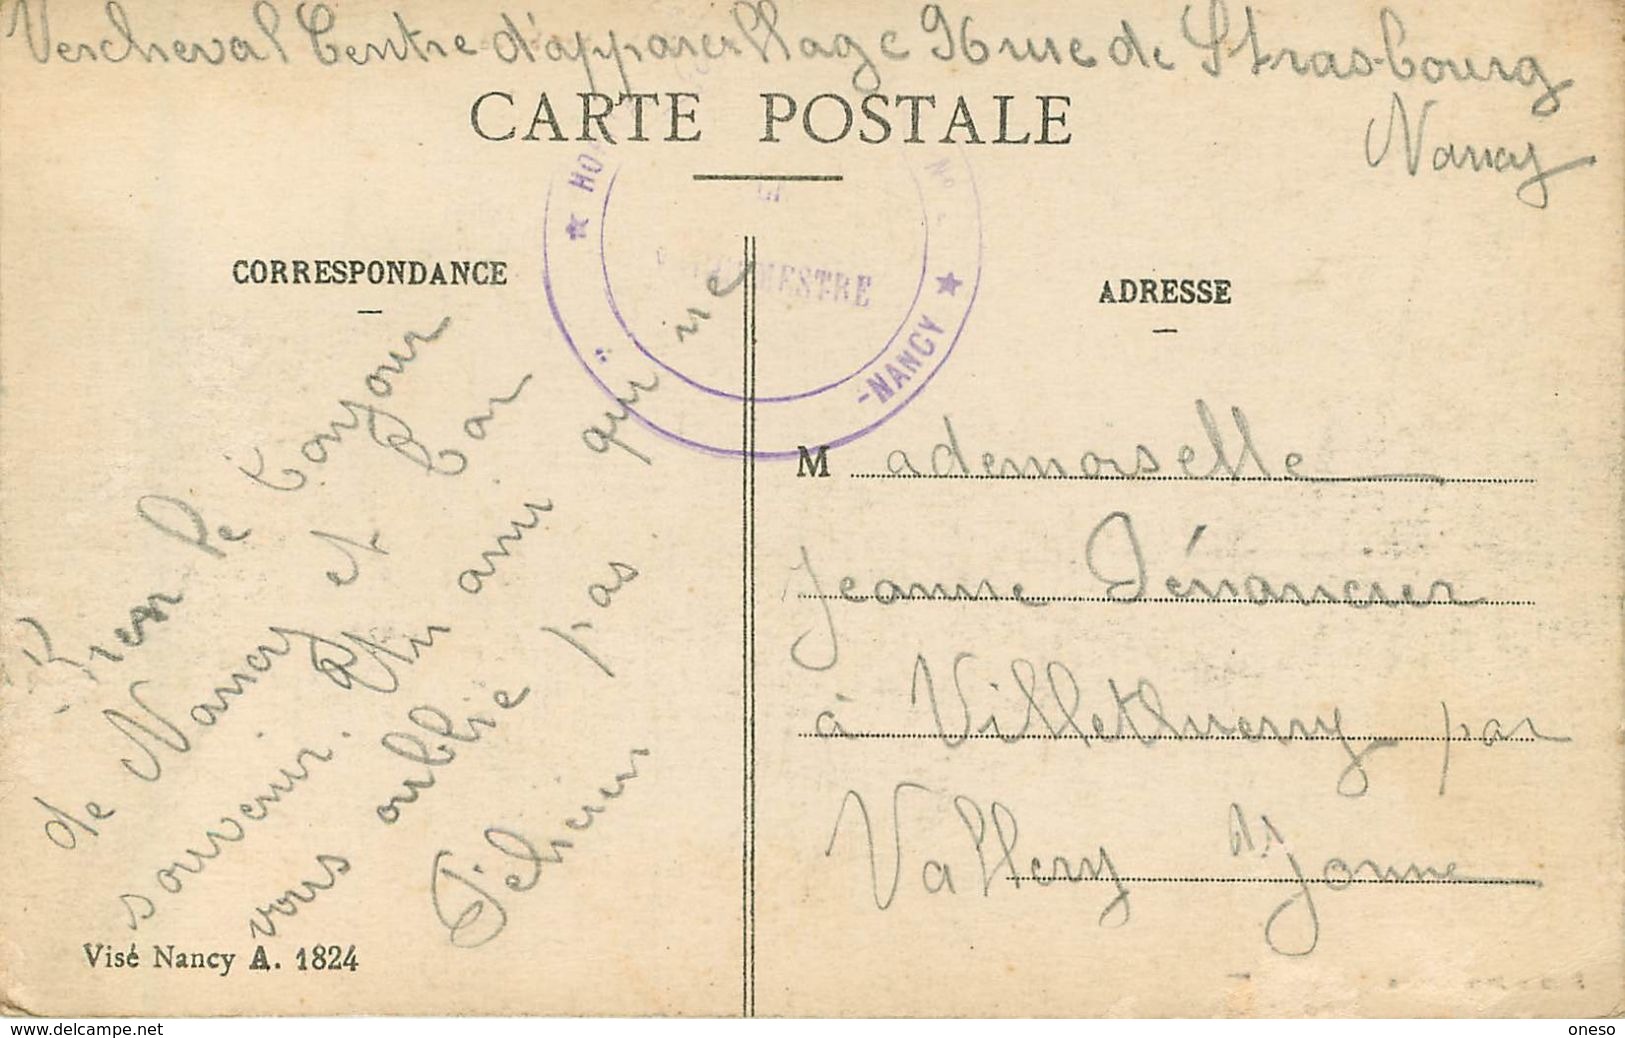 Vercheval Centre d'appareillage 96 rue de Strasbourg
Nancy
CARTE POSTALE
★ HO
No
-NANCY ★
CORRESPONDANCE
ADRESSE
Bien le bonjour
de Nancy et bon
souvenir d'un ami qui ne
vous oublie pas
Félicien
Mademoiselle
Jeanne Vénancier
à Villethierry par
Vallery ds Yonne
Visé Nancy A. 1824
www.delcampe.net
oneso